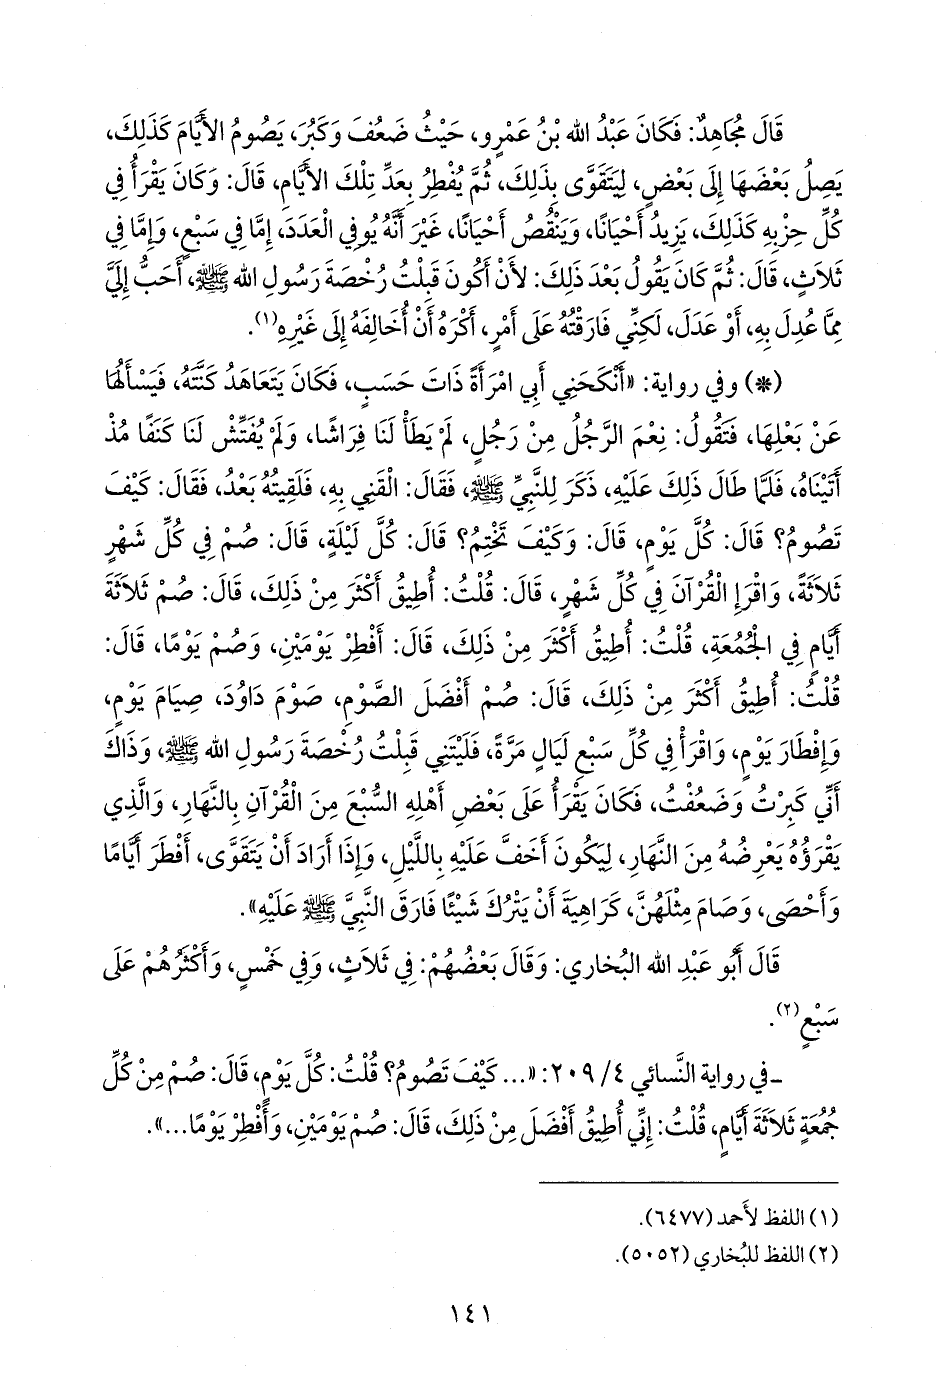 قَالَ مُجَاهِدٌ: فَكَانَ عَبْدُ الله بْنُ عَمْرٍو، حَيْثُ ضَعُفَ وَكَبُرَ، يَصُومُ الأَيَّامَ كَذَلِكَ،
يَصِلُ بَعْضَهَا إِلَى بَعْضٍ، لِيَتَقَوَّى بِذَلِكَ، ثُمَّ يُفْطِرُ بِعَدِّ تِلْكَ الأَيَّامِ، قَالَ: وَكَانَ يَقْرَأُ فِي
كُلِّ حِزْبِهِ كَذَلِكَ، يَزِيدُ أَحْيَانًا، وَيَنْقُصُ أَحْيَانًا، غَيْرَ أَنَّهُ يُوفِي الْعَدَدَ، إِمَّا فِي سَبْعٍ، وَإِمَّا فِي
ثَلاَثٍ، قَالَ: ثُمَّ كَانَ يَقُولُ بَعْدَ ذَلِكَ: لأَنْ أَكُونَ قَبِلْتُ رُخْصَةَ رَسُولِ الله ﷺ، أَحَبُّ إِلَيَّ
مِمَّا عُدِلَ بِهِ، أَوْ عَدَلَ، لَكِنِّي فَارَقْتُهُ عَلَى أَمْرٍ، أَكْرَهُ أَنْ أُخَالِفَهُ إِلَى غَيْرِهِ(١).
(*) وفي رواية: «أَنْكَحَنِي أَبِي امْرَأَةً ذَاتَ حَسَبٍ، فَكَانَ يَتَعَاهَدُ كَنَّتَهُ، فَيَسْأَلُهَا
عَنْ بَعْلِهَا، فَتَقُولُ: نِعْمَ الرَّجُلُ مِنْ رَجُلٍ، لَمْ يَطَأْ لَنَا فِرَاشًا، وَلَمْ يُفَتِّشْ لَنَا كَنَفًا مُذْ
أَتَيْنَاهُ، فَلَمَّا طَالَ ذَلِكَ عَلَيْهِ، ذَكَرَ لِلنَّبِيِّ ﷺ، فَقَالَ: الْقَنِي بِهِ، فَلَقِيتُهُ بَعْدُ، فَقَالَ: كَيْفَ
تَصُومُ؟ قَالَ: كُلَّ يَوْمٍ، قَالَ: وَكَيْفَ تَخْتِمُ؟ قَالَ: كُلَّ لَيْلَةٍ، قَالَ: صُمْ فِي كُلِّ شَهْرٍ
ثَلاَثَةً، وَاقْرَإِ الْقُرْآنَ فِي كُلِّ شَهْرٍ، قَالَ: قُلْتُ: أُطِيقُ أَكْثَرَ مِنْ ذَلِكَ، قَالَ: صُمْ ثَلاَثَةَ
أَيَّامٍ فِي الْجُمُعَةِ، قُلْتُ: أُطِيقُ أَكْثَرَ مِنْ ذَلِكَ، قَالَ: أَفْطِرْ يَوْمَيْنِ، وَصُمْ يَوْمًا، قَالَ:
قُلْتُ: أُطِيقُ أَكْثَرَ مِنْ ذَلِكَ، قَالَ: صُمْ أَفْضَلَ الصَّوْمِ، صَوْمَ دَاوُدَ، صِيَامَ يَوْمٍ،
وَإِفْطَارَ يَوْمٍ، وَاقْرَأْ فِي كُلِّ سَبْعِ لَيَالٍ مَرَّةً، فَلَيْتَنِي قَبِلْتُ رُخْصَةَ رَسُولِ الله ﷺ، وَذَاكَ
أَنِّي كَبِرْتُ وَضَعُفْتُ، فَكَانَ يَقْرَأُ عَلَى بَعْضِ أَهْلِهِ السُّبْعَ مِنَ الْقُرْآنِ بِالنَّهَارِ، وَالَّذِي
يَقْرَؤُهُ يَعْرِضُهُ مِنَ النَّهَارِ، لِيَكُونَ أَخَفَّ عَلَيْهِ بِاللَّيْلِ، وَإِذَا أَرَادَ أَنْ يَتَقَوَّى، أَفْطَرَ أَيَّامًا
وَأَحْصَى، وَصَامَ مِثْلَهُنَّ، كَرَاهِيَةَ أَنْ يَتْرُكَ شَيْئًا فَارَقَ النَّبِيَّ ﷺ عَلَيْهِ».
قَالَ أَبُو عَبْدِ الله البُخاري: وَقَالَ بَعْضُهُمْ: فِي ثَلاَثٍ، وَفِي خَمْسٍ، وَأَكْثَرُهُمْ عَلَى
سَبْعٍ(٢).
ـ في رواية النَّسائي ٤/ ٢٠٩: «... كَيْفَ تَصُومُ؟ قُلْتُ: كُلَّ يَوْمٍ، قَالَ: صُمْ مِنْ كُلِّ
جُمُعَةٍ ثَلاَثَةَ أَيَّامٍ، قُلْتُ: إِنِّي أُطِيقُ أَفْضَلَ مِنْ ذَلِكَ، قَالَ: صُمْ يَوْمَيْنِ، وَأَفْطِرْ يَوْمًا...».
(١) اللفظ لأَحمد (٦٤٧٧).
(٢) اللفظ للبُخاري (٥٠٥٢).
١٤١